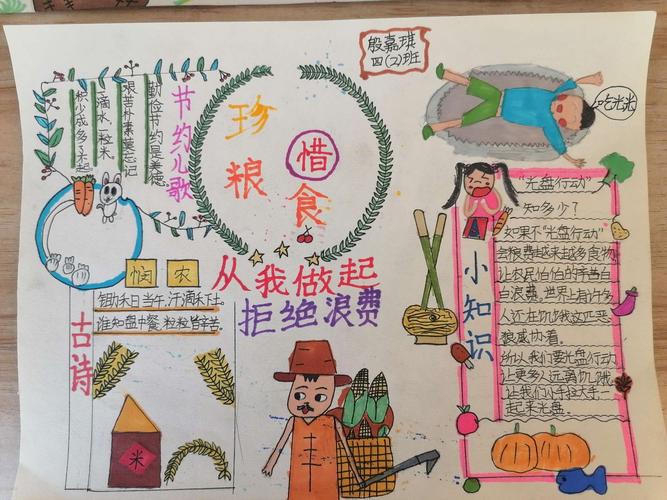 殷嘉琪
四(2)班
节约儿歌
勤俭节约是美德
艰苦朴素莫忘记
一滴水一粒米
积少成多了不起
珍惜
粮食
从我做起
拒绝浪费
古诗
悯农
锄禾日当午,汗滴禾下土。
谁知盘中餐,粒粒皆辛苦。
米
丰
小知识
"光盘行动"
知多少?
如果不"光盘行动"
会浪费越来越多食物,
让农民伯伯的辛苦白
白浪费。世界上有许多
人还在这匹恶
狼威协着。
所以我们要光盘行动
让更多人远离饥饿。
让我们小手拉大手,
起来光盘。